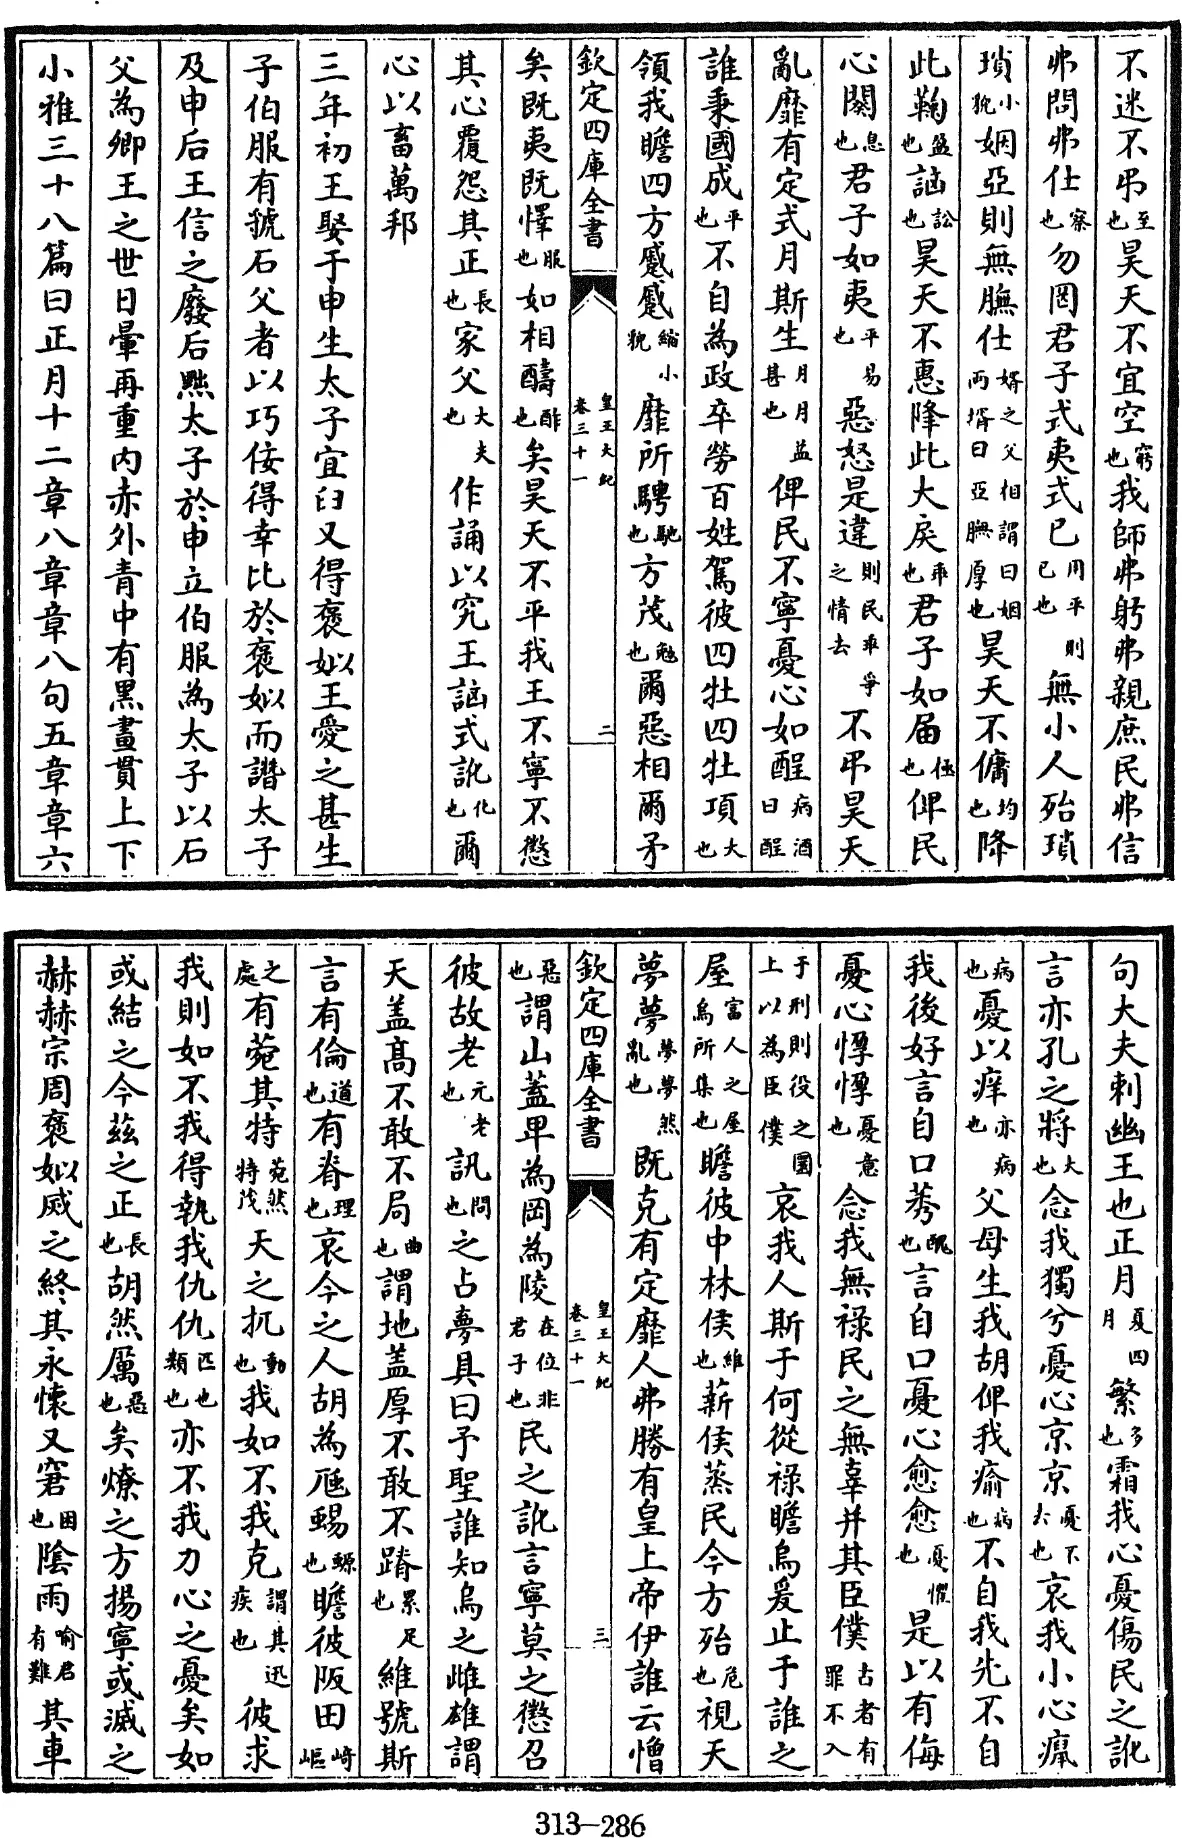 不迷不弔至也昊天不宜空窮也我師弗躬弗親庶民弗信
弗問弗仕察也勿罔君子式夷式已用平則已也無小人殆瑣
瑣小貌姻亞則無膴仕婿之父相謂曰姻兩壻曰亞膴厚也昊天不傭均也降
此鞠盈也訩訟也昊天不惠降此大戾乖也君子如届極也俾民
心闋息也君子如夷平易也惡怒是違則民乖爭之情去不弔昊天
亂靡有定式月斯生月月益甚也俾民不寧憂心如酲病酒曰酲
誰秉國成平也不自為政卒勞百姓駕彼四牡四牡項大也
領我瞻四方蹙蹙縮小貌靡所騁馳也方茂勉也爾惡相爾矛
欽定四庫全書
皇王大紀
卷三十一
二
矣既夷既懌服也如相醻酢也矣昊天不平我王不寧不懲
其心覆怨其正長也家父大夫也作誦以究王訩式訛化也爾
心以畜萬邦
三年初王娶于申生太子宜臼又得褒姒王愛之甚生
子伯服有虢石父者以巧佞得幸比於褒姒而譖太子
及申后王信之廢后黜太子於申立伯服為太子以石
父為卿王之世日暈再重内赤外青中有黒畫貫上下
小雅三十八篇曰正月十二章八章章八句五章章六
句大夫刺幽王也正月夏四月繁多也霜我心憂傷民之訛
言亦孔之將大也念我獨兮憂心京京憂不去也哀我小心癙
病也憂以痒亦病也父母生我胡俾我瘉病也不自我先不自
我後好言自口莠醜也言自口憂心愈愈憂懼也是以有侮
憂心惸惸憂意也念我無祿民之無辜并其臣僕古者有罪不入
于刑則役之圜上以為臣僕哀我人斯于何從祿瞻烏爰止于誰之
屋富人之屋烏所集也瞻彼中林侯維也薪侯蒸民今方殆危也視天
夢夢夢夢然亂也既克有定靡人弗勝有皇上帝伊誰云憎
欽定四庫全書
皇王大紀
卷三十一
三
惡也謂山蓋卑為岡為陵在位非君子也民之訛言寧莫之懲召
彼故老元老也訊問也之占夢具曰予聖誰知烏之雌雄謂
天盖髙不敢不局曲也謂地盖厚不敢不蹐累足也維號斯
言有倫道也有脊理也哀今之人胡為虺蜴螈也瞻彼阪田崎嶇
之處有菀其特菀然特茂天之扤動也我如不我克謂其迅疾也彼求
我則如不我得執我仇仇匹也類也亦不我力心之憂矣如
或結之今茲之正長也胡然厲惡也矣燎之方揚寧或滅之
赫赫宗周褒姒烕之終其永懷又窘困也隂雨喻君有難其車
313-286